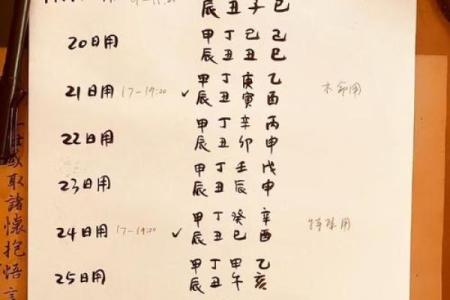 辰丑子巳
20日用 甲丁己己
辰丑丑巳
21日用 17-19:00 ✓ 甲丁庚乙 木命用
辰丑寅酉
22日用 甲丁辛丙
辰丑卯申
23日用 甲丁壬戊
辰丑辰申
24日用 17-19:00 ✓ 甲丁癸辛
辰丑巳酉
25日用 甲丁甲乙
辰丑午亥
取諸懷抱悟言